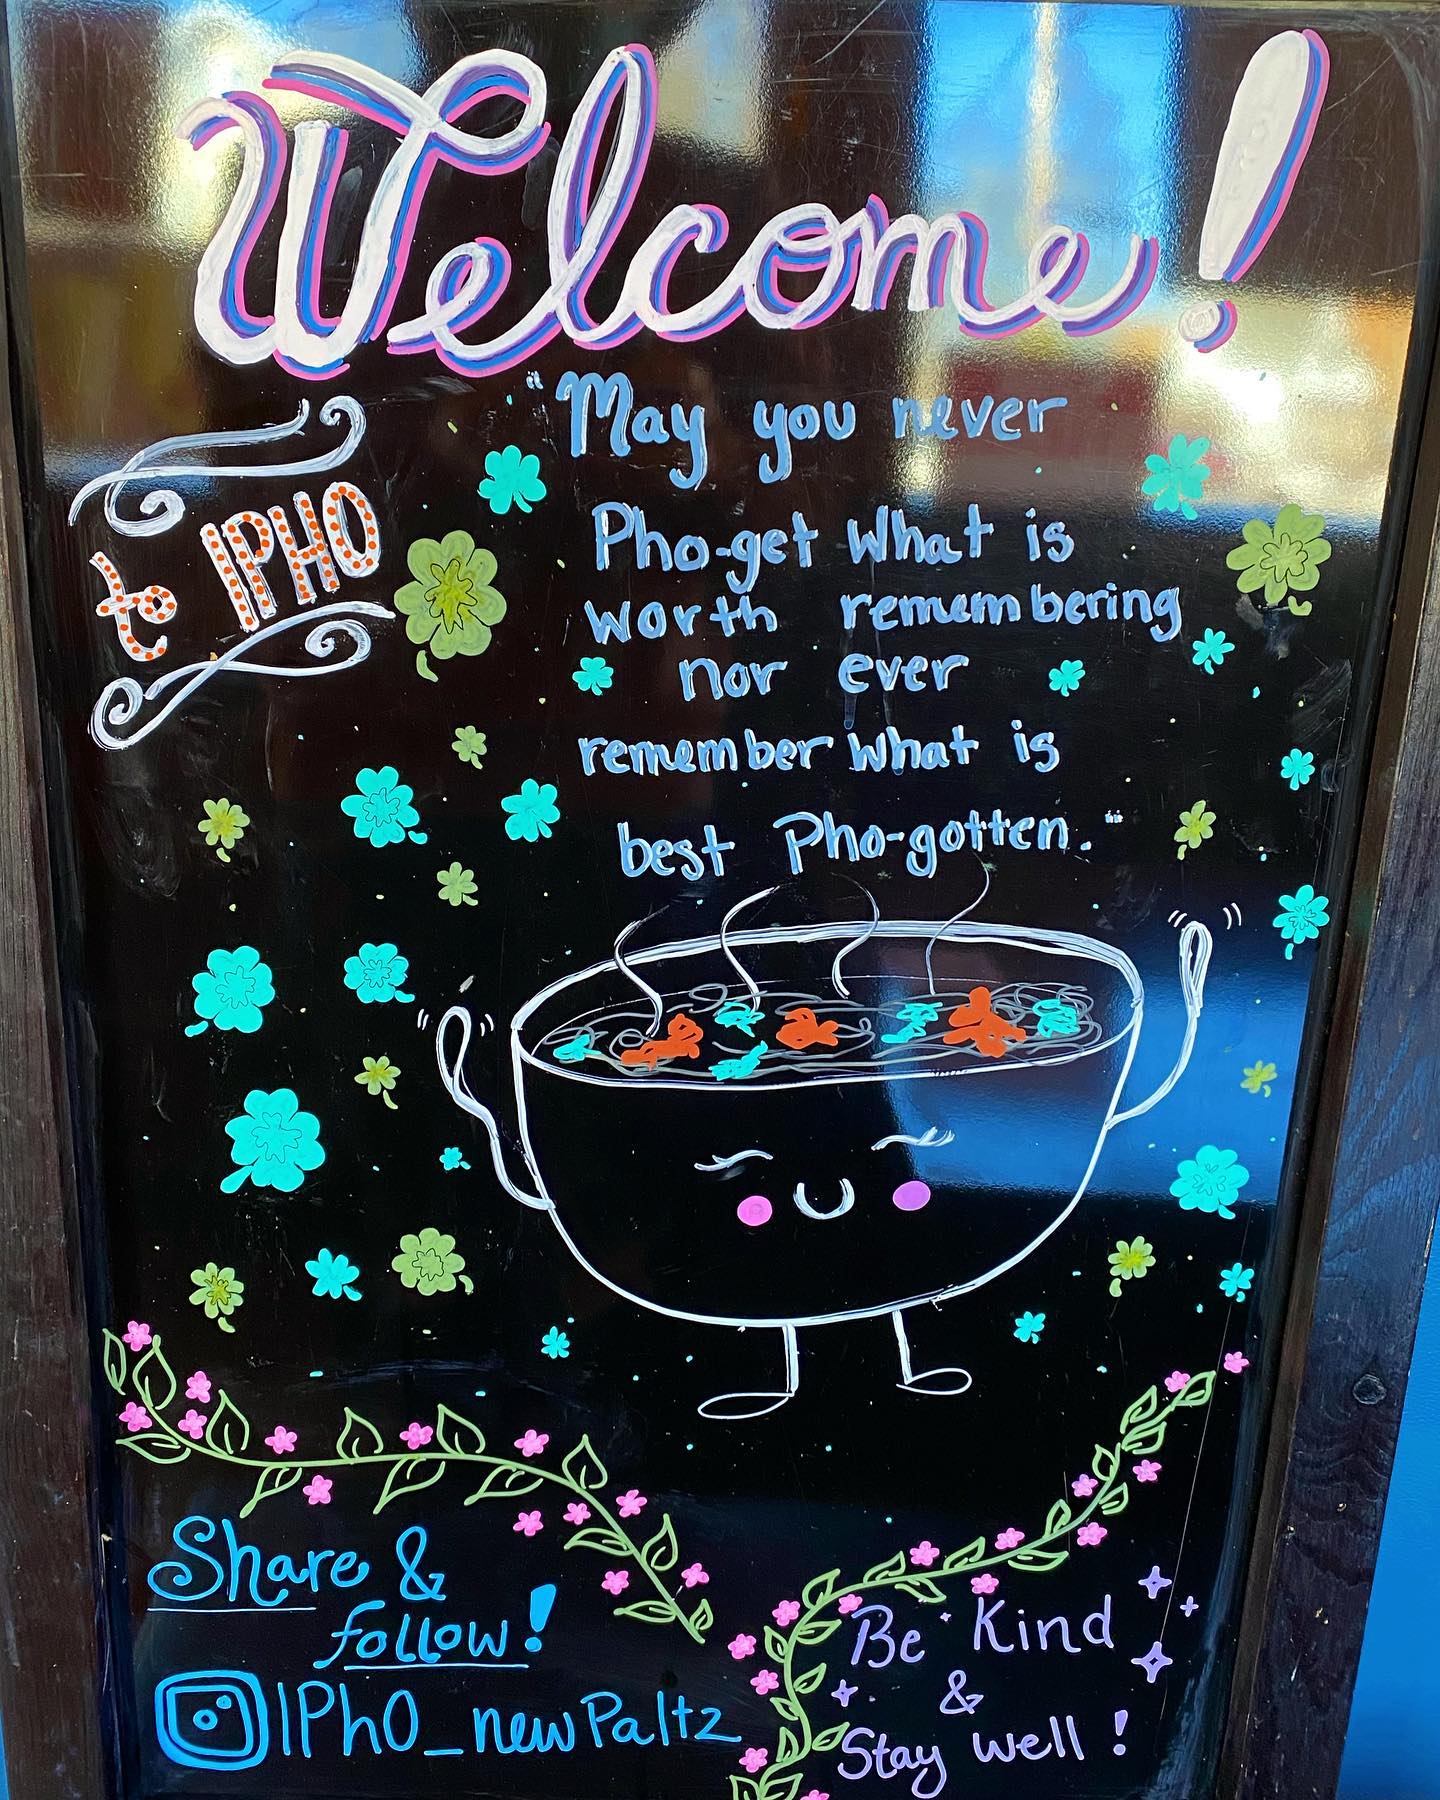 Welcome!
to IPHO
"May you never
Pho-get what is
worth rememambering
nor ever
remember what is
best Pho-gotten."
Share &
follow!
IPhO_newPaltz
Be Kind
&
Stay well!